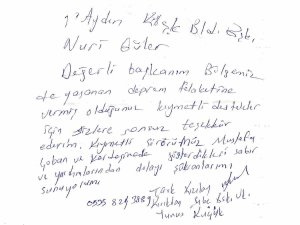 Aydın Bld. Bşk.
Nuri Güler
Değerli başkanım Bölgemiz
de yaşanan deprem felaketine
vermiş olduğunuz kıymetli destekler
için sizlere sonsuz teşekkür
ederim. Kıymetli Mustafa
Çoban ve kardeşimede gösterdikleri sabır
ve yardımlarından dolayı şükranlarımı
sunuyorum
Türk Kızılay
Şube Bşk. V.
Yunus